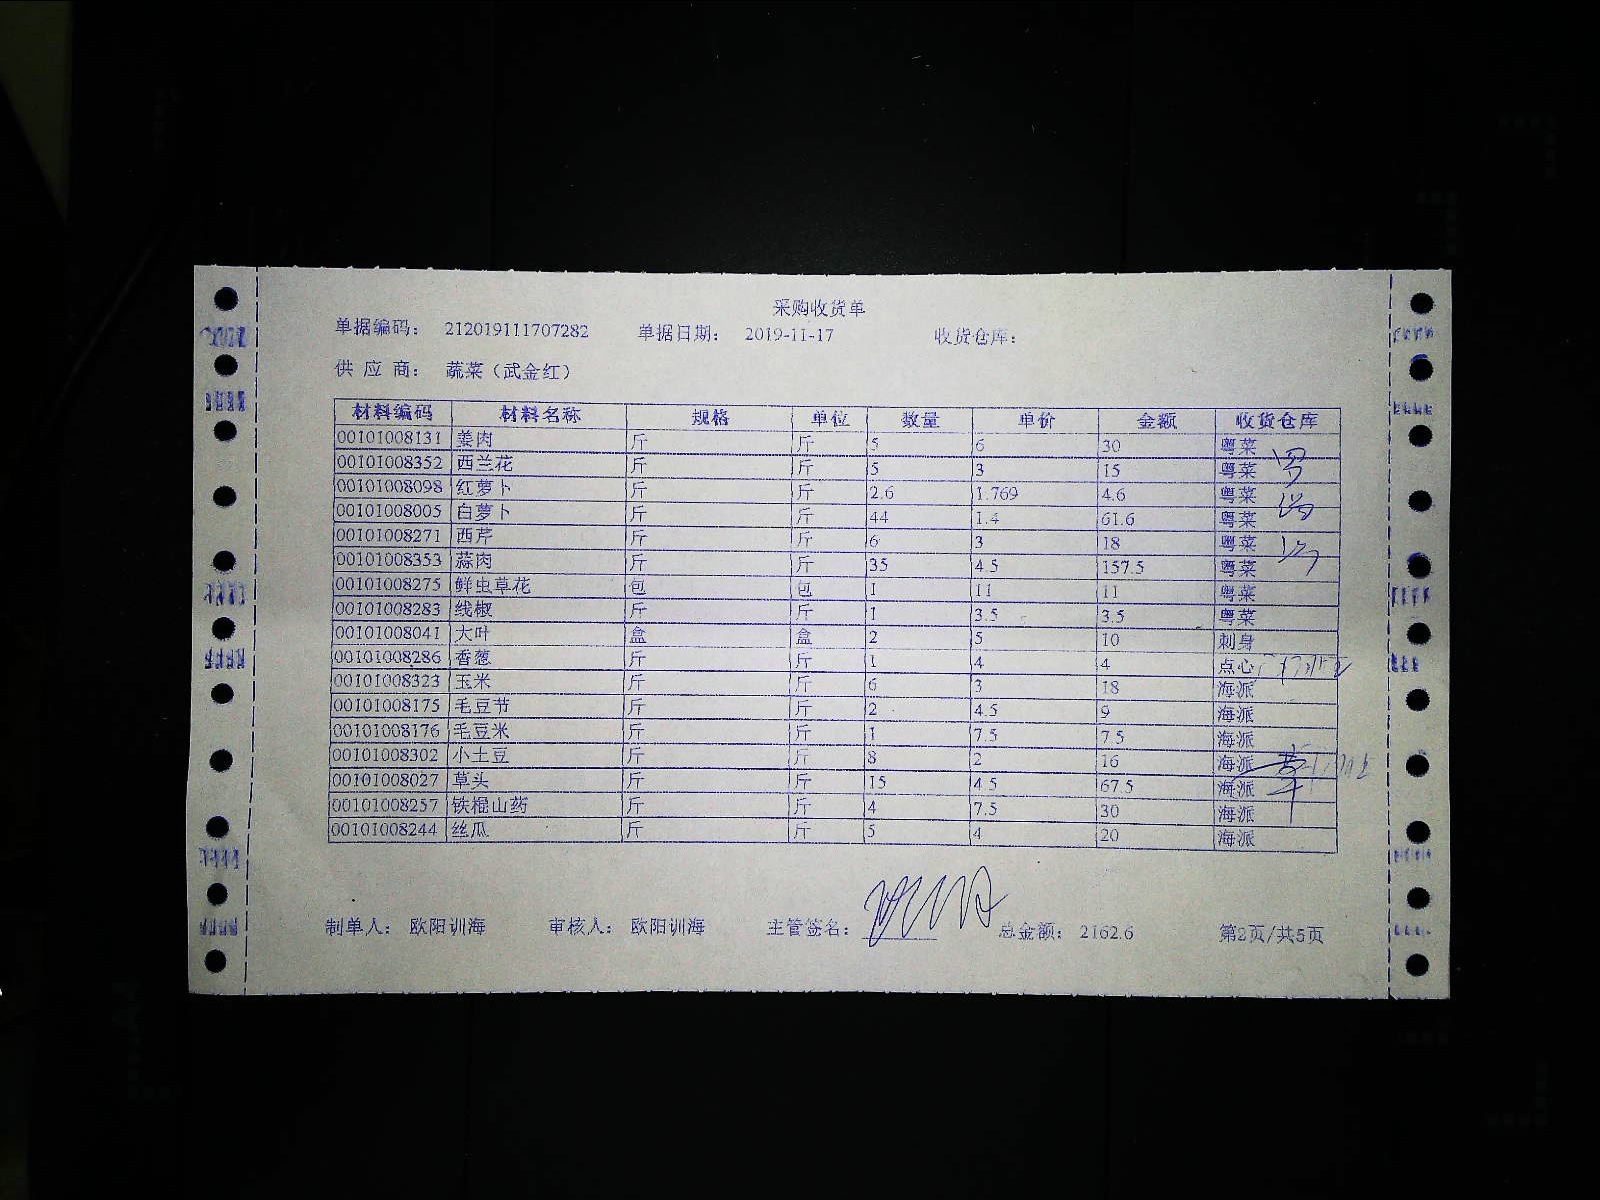 采购收货单
单据编码： 212019111707282 单据日期： 2019-11-17 收货仓库：
供 应 商： 蔬菜（武金红）
材料编码 材料名称 规格 单位 数量 单价 金额 收货仓库
00101008131 姜肉 斤 斤 5 6 30 粤菜
00101008352 西兰花 斤 斤 5 3 15 粤菜
00101008098 红萝卜 斤 斤 2.6 1.769 4.6 粤菜
00101008005 白萝卜 斤 斤 44 1.4 61.6 粤菜
00101008271 西芹 斤 斤 6 3 18 粤菜
00101008353 蒜肉 斤 斤 35 4.5 157.5 粤菜
00101008275 鲜虫草花 包 包 1 11 11 粤菜
00101008283 线椒 斤 斤 1 3.5 3.5 粤菜
00101008041 大叶 盒 盒 2 5 10 刺身
00101008286 香葱 斤 斤 1 4 4 点心
00101008323 玉米 斤 斤 6 3 18 海派
00101008175 毛豆节 斤 斤 2 4.5 9 海派
00101008176 毛豆米 斤 斤 1 7.5 7.5 海派
00101008302 小土豆 斤 斤 8 2 16 海派
00101008027 草头 斤 斤 15 4.5 67.5 海派
00101008257 铁棍山药 斤 斤 4 7.5 30 海派
00101008244 丝瓜 斤 斤 5 4 20 海派
制单人： 欧阳训海 审核人： 欧阳训海 主管签名： 总金额： 2162.6 第2页/共5页